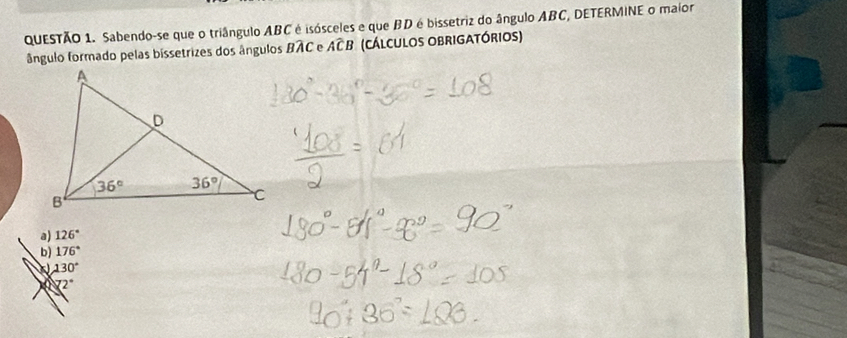 QUESTÃO 1. Sabendo-se que o triângulo ABC é isósceles e que BD é bissetriz do ângulo ABC, DETERMINE o maior
ângulo formado pelas bissetrizes dos ângulos BÂC e AĈB (CÁLCULOS OBRIGATÓRIOS)
A
D
36°
36°
B
C
180° - 36° - 36° = 108
108/2 = 54
180° - 54° - 36° = 90°
180 - 54° - 18° = 108
90° + 36° = 126.
a) 126°
b) 176°
c) 130°
d) 72°